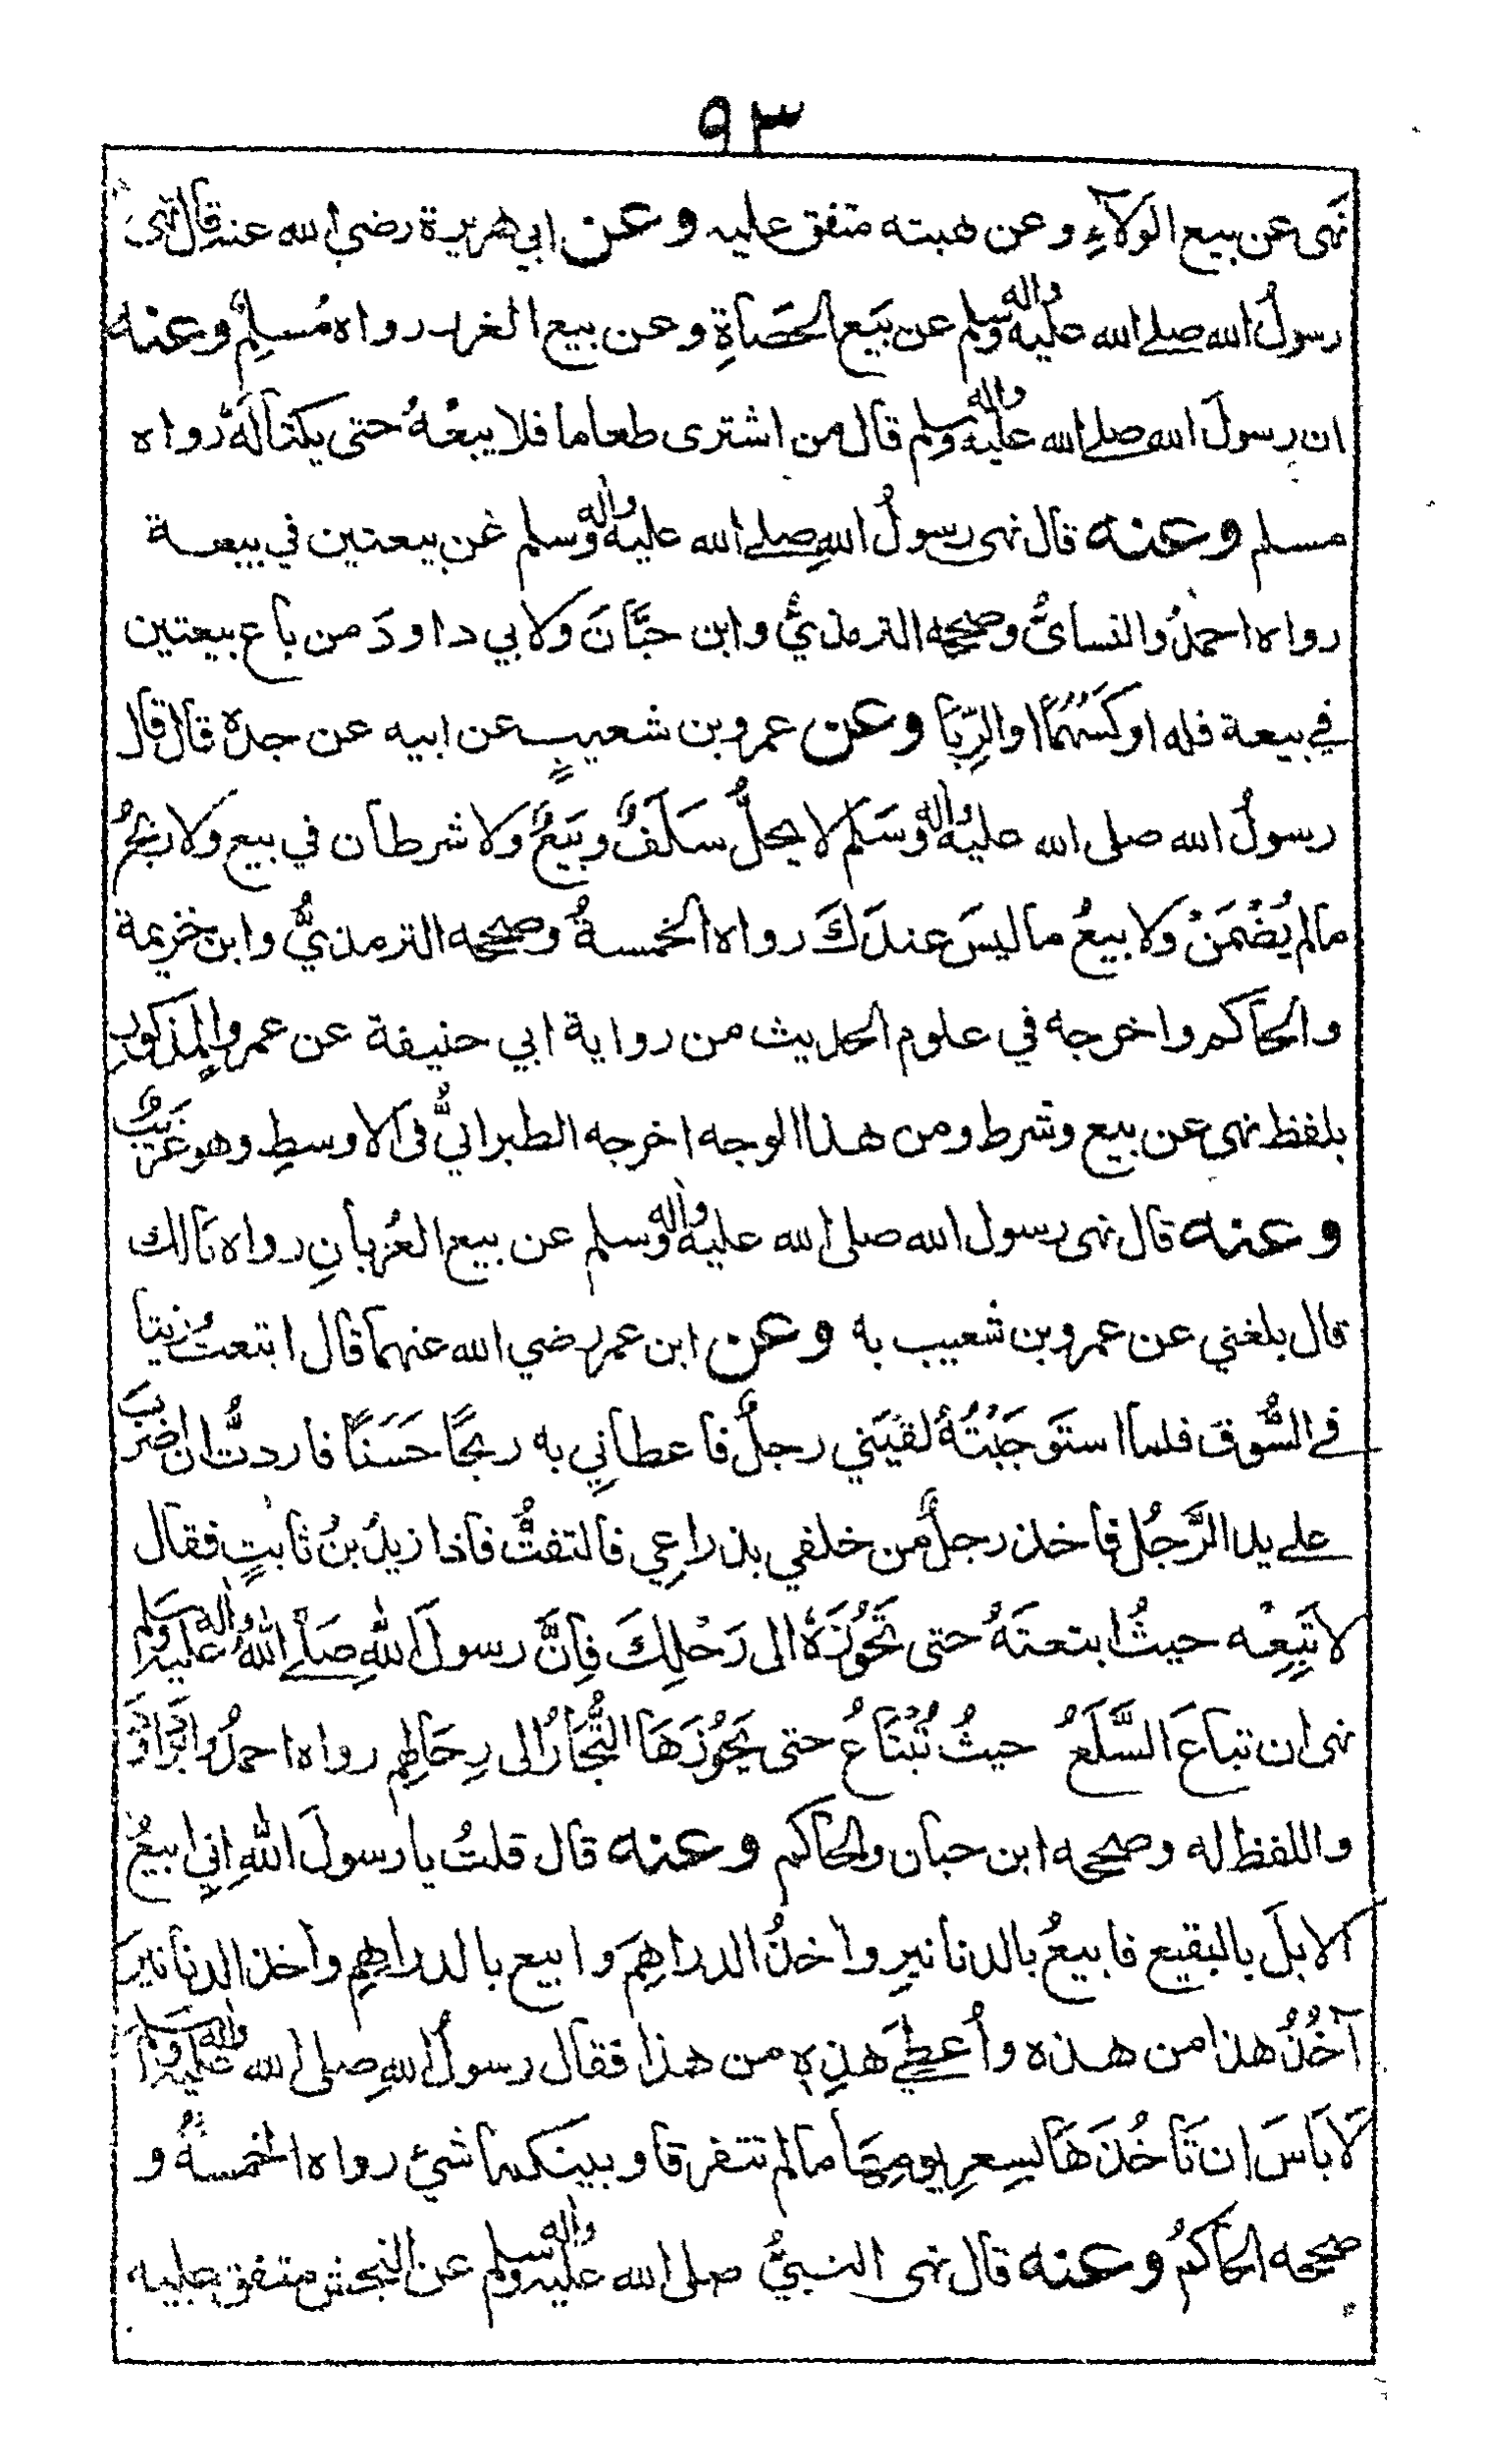 ٩٣
نَهى عن بيع الوَلاءِ وعن هبته متفق عليه وعن ابي هريرة رضي الله عنه قال نهى
رسولُ الله صلى الله عليه واله وسلم عن بَيع الحَصَاةِ وعن بيع الغرر رواه مُسلِمٌ وعنه
ان رسولَ الله صلى الله عليه واله وسلم قال من اشترى طعاما فلا يبعْهُ حتى يكتالَهُ رواه
مسلم وعنه قال نهى رسولُ اللهِ صلى الله عليه واله وسلم عن بيعتين في بيعة
رواه احمدُ والنسائىُّ وصححه الترمذيُّ وابن حبَّانَ ولابي داودَ من باع بيعتين
في بيعة فله اوكسُهُمَا اوالرِّبَا وعن عمرو بن شعيبٍ عن ابيه عن جده قال قال
رسولُ الله صلى الله عليه واله وسَلم لا يحلُّ سَلَفٌ وبَيعٌ ولا شرطان في بيع ولا ربحُ
مالم يُضْمَنْ ولا بيعُ ما ليسَ عندَكَ رواه الخمسةُ وصححه الترمذيُّ وابن خزيمة
والحاكم واخرجه في علوم الحديث من رواية ابي حنيفة عن عمرو المذكورِ
بلفظ نهى عن بيع وشرط ومن هذا الوجه اخرجه الطبرانيُّ في الاوسطِ وهو غريبٌ
وعنه قال نهى رسول الله صلى الله عليه واله وسلم عن بيع العُربانِ رواه مالك
قال بلغني عن عمرو بن شعيب به وعن ابن عمر رضي الله عنهما قال ابتعتُ زيتا
في السُّوق فلما استَوجَبْتُهُ لقيَني رجلٌ فاعطانِي به ربحًا حَسَنًا فاردتُّ ان اضربَ
على يد الرَّجُل فاخذ رجلٌ من خلفي بذراعِي فالتفتُّ فاذا زيدُ بنُ ثابتٍ فقال
لا تَبِعْه حيثُ ابتعتَهُ حتى تَحُوزَهُ الى رَحْلِكَ فِانَّ رسولَ اللهِ صَلى اللهُ عليه واله وسلم
نهى ان تباعَ السَّلَعُ حيثُ تُبْتَاعُ حتى يَحُوزَهَا التُّجَارُ الى رِحَالِهِم رواه احمدُ وابوداؤدَ
واللفظ له وصححه ابن حبان والحاكم وعنه قال قلتُ يا رسولَ اللهِ اِنِي ابيعُ
الابلَ بالبقيع فابيعُ بالدنانيرِ واخذُ الدراهِمَ وابيع بالدراهِمِ واخذ الدنانيرَ
آخُذُ هذا من هذه واُعطِي هذِهِ من هذا فقال رسولُ اللهِ صلى الله عليه واله وسلم
لَا بَاسَ ان تَاخُذَهَا بسِعرِ يومِهَا مالم تتفرقا وبينكما شئ رواه الخمسةُ و
صححه الحاكمُ وعنه قال نهى النبيُّ صلى الله عليه واله وسلم عن النجش متفق عليه